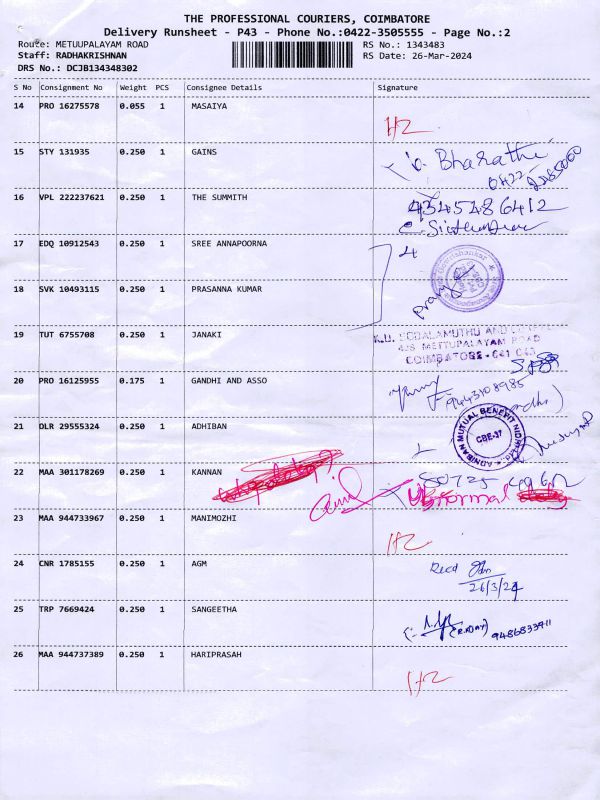 THE PROFESSIONAL COURIERS, COIMBATORE
Delivery Runsheet - P43 - Phone No.:0422-3505555 - Page No.:2
Route: METUUPALAYAM ROAD
RS No.: 1343483
Staff: RADHAKRISHNAN
RS Date: 26-Mar-2024
DRS No.: DCJB134348302
S No Consignment No Weight PCS Consignee Details Signature
14 PRO 16275578 0.055 1 MASAIYA
15 STY 131935 0.250 1 GAINS
Bharathi
0422
16 VPL 222237621 0.250 1 THE SUMMITH
17 EDQ 10912543 0.250 1 SREE ANNAPOORNA
4
18 SVK 10493115 0.250 1 PRASANNA KUMAR
19 TUT 6755708 0.250 1 JANAKI
METTUPALAYAM ROAD
COIMBATORE - 641 043
20 PRO 16125955 0.175 1 GANDHI AND ASSO
9443108985
21 DLR 29555324 0.250 1 ADHIBAN
ADHIBAN MUTUAL BENEFIT NIDHI LTD
CBE-37
22 MAA 301178269 0.250 1 KANNAN
normal
23 MAA 944733967 0.250 1 MANIMOZHI
24 CNR 1785155 0.250 1 AGM
Recd
26/3/24
25 TRP 7669424 0.250 1 SANGEETHA
26 MAA 944737389 0.250 1 HARIPRASAH